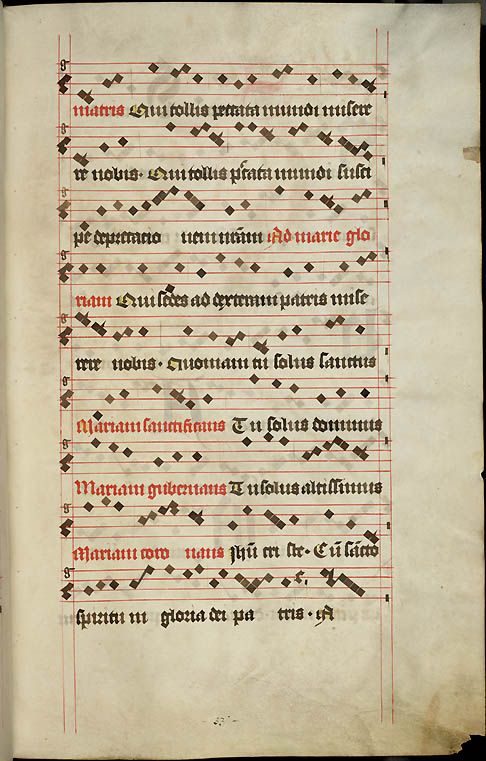 matris Qui tollis peccata mundi misere
re nobis · Qui tollis pctata mundi susci
pe deprecatio nem nram Ad marie glo
riam Qui sedes ad dexteram patris mise
rere nobis · Quoniam tu solus sanctus
Mariam sanctificans Tu solus dominus
Mariam gubernans Tu solus altissimus
Mariam coro nans Jhu cri ste · Cu sacto
spiritu in gloria dei pa tris · A